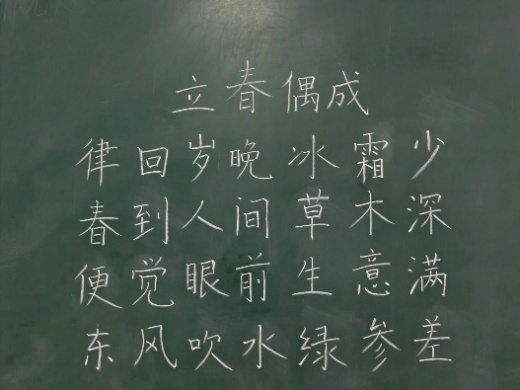 立春偶成
律回岁晚冰霜少
春到人间草木深
便觉眼前生意满
东风吹水绿参差